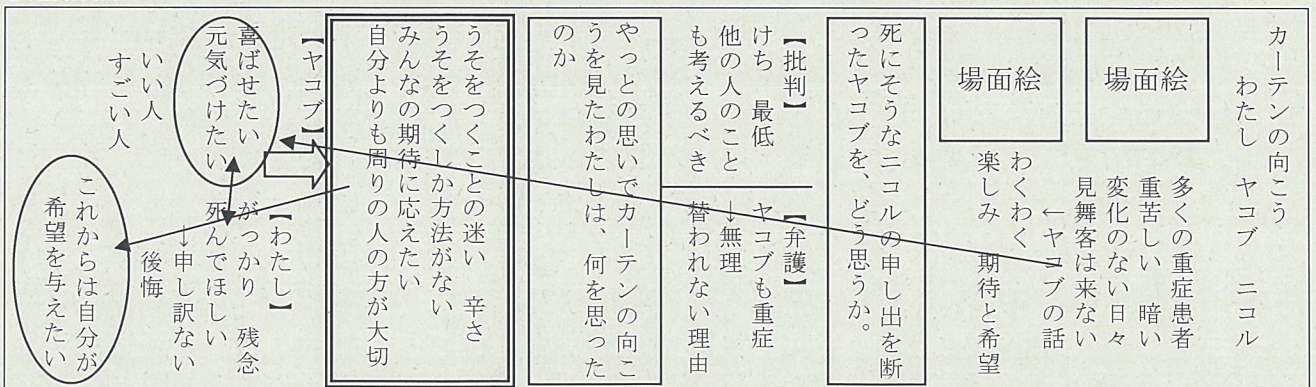 カーテンの向こう
わたし　ヤコブ　ニコル
場面絵
多くの重症患者
重苦しい　暗い
変化のない日々
見舞客は来ない
←ヤコブの話
場面絵
わくわく
楽しみ　期待と希望
死にそうなニコルの申し出を断
ったヤコブを、どう思うか。
【批判】
けち　最低
他の人のこと
も考えるべき
【弁護】
ヤコブも重症
→無理
替われない理由
やっとの思いでカーテンの向こ
うを見たわたしは、何を思った
のか
うそをつくことの迷い　辛さ
うそをつくしか方法がない
みんなの期待に応えたい
自分よりも周りの人の方が大切
【ヤコブ】
喜ばせたい
元気づけたい
いい人
すごい人
【わたし】
がっかり　残念
死んでほしい
→申し訳ない
後悔
これからは自分が
希望を与えたい